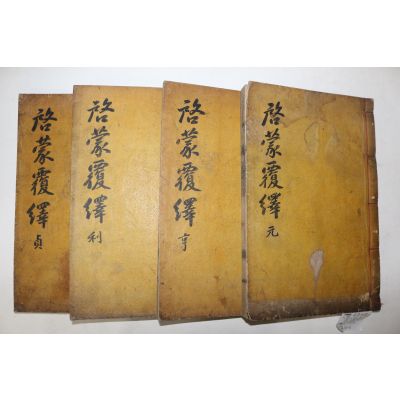 啓蒙覆繹 元
啓蒙覆繹 亨
啓蒙覆繹 利
啓蒙覆繹 貞